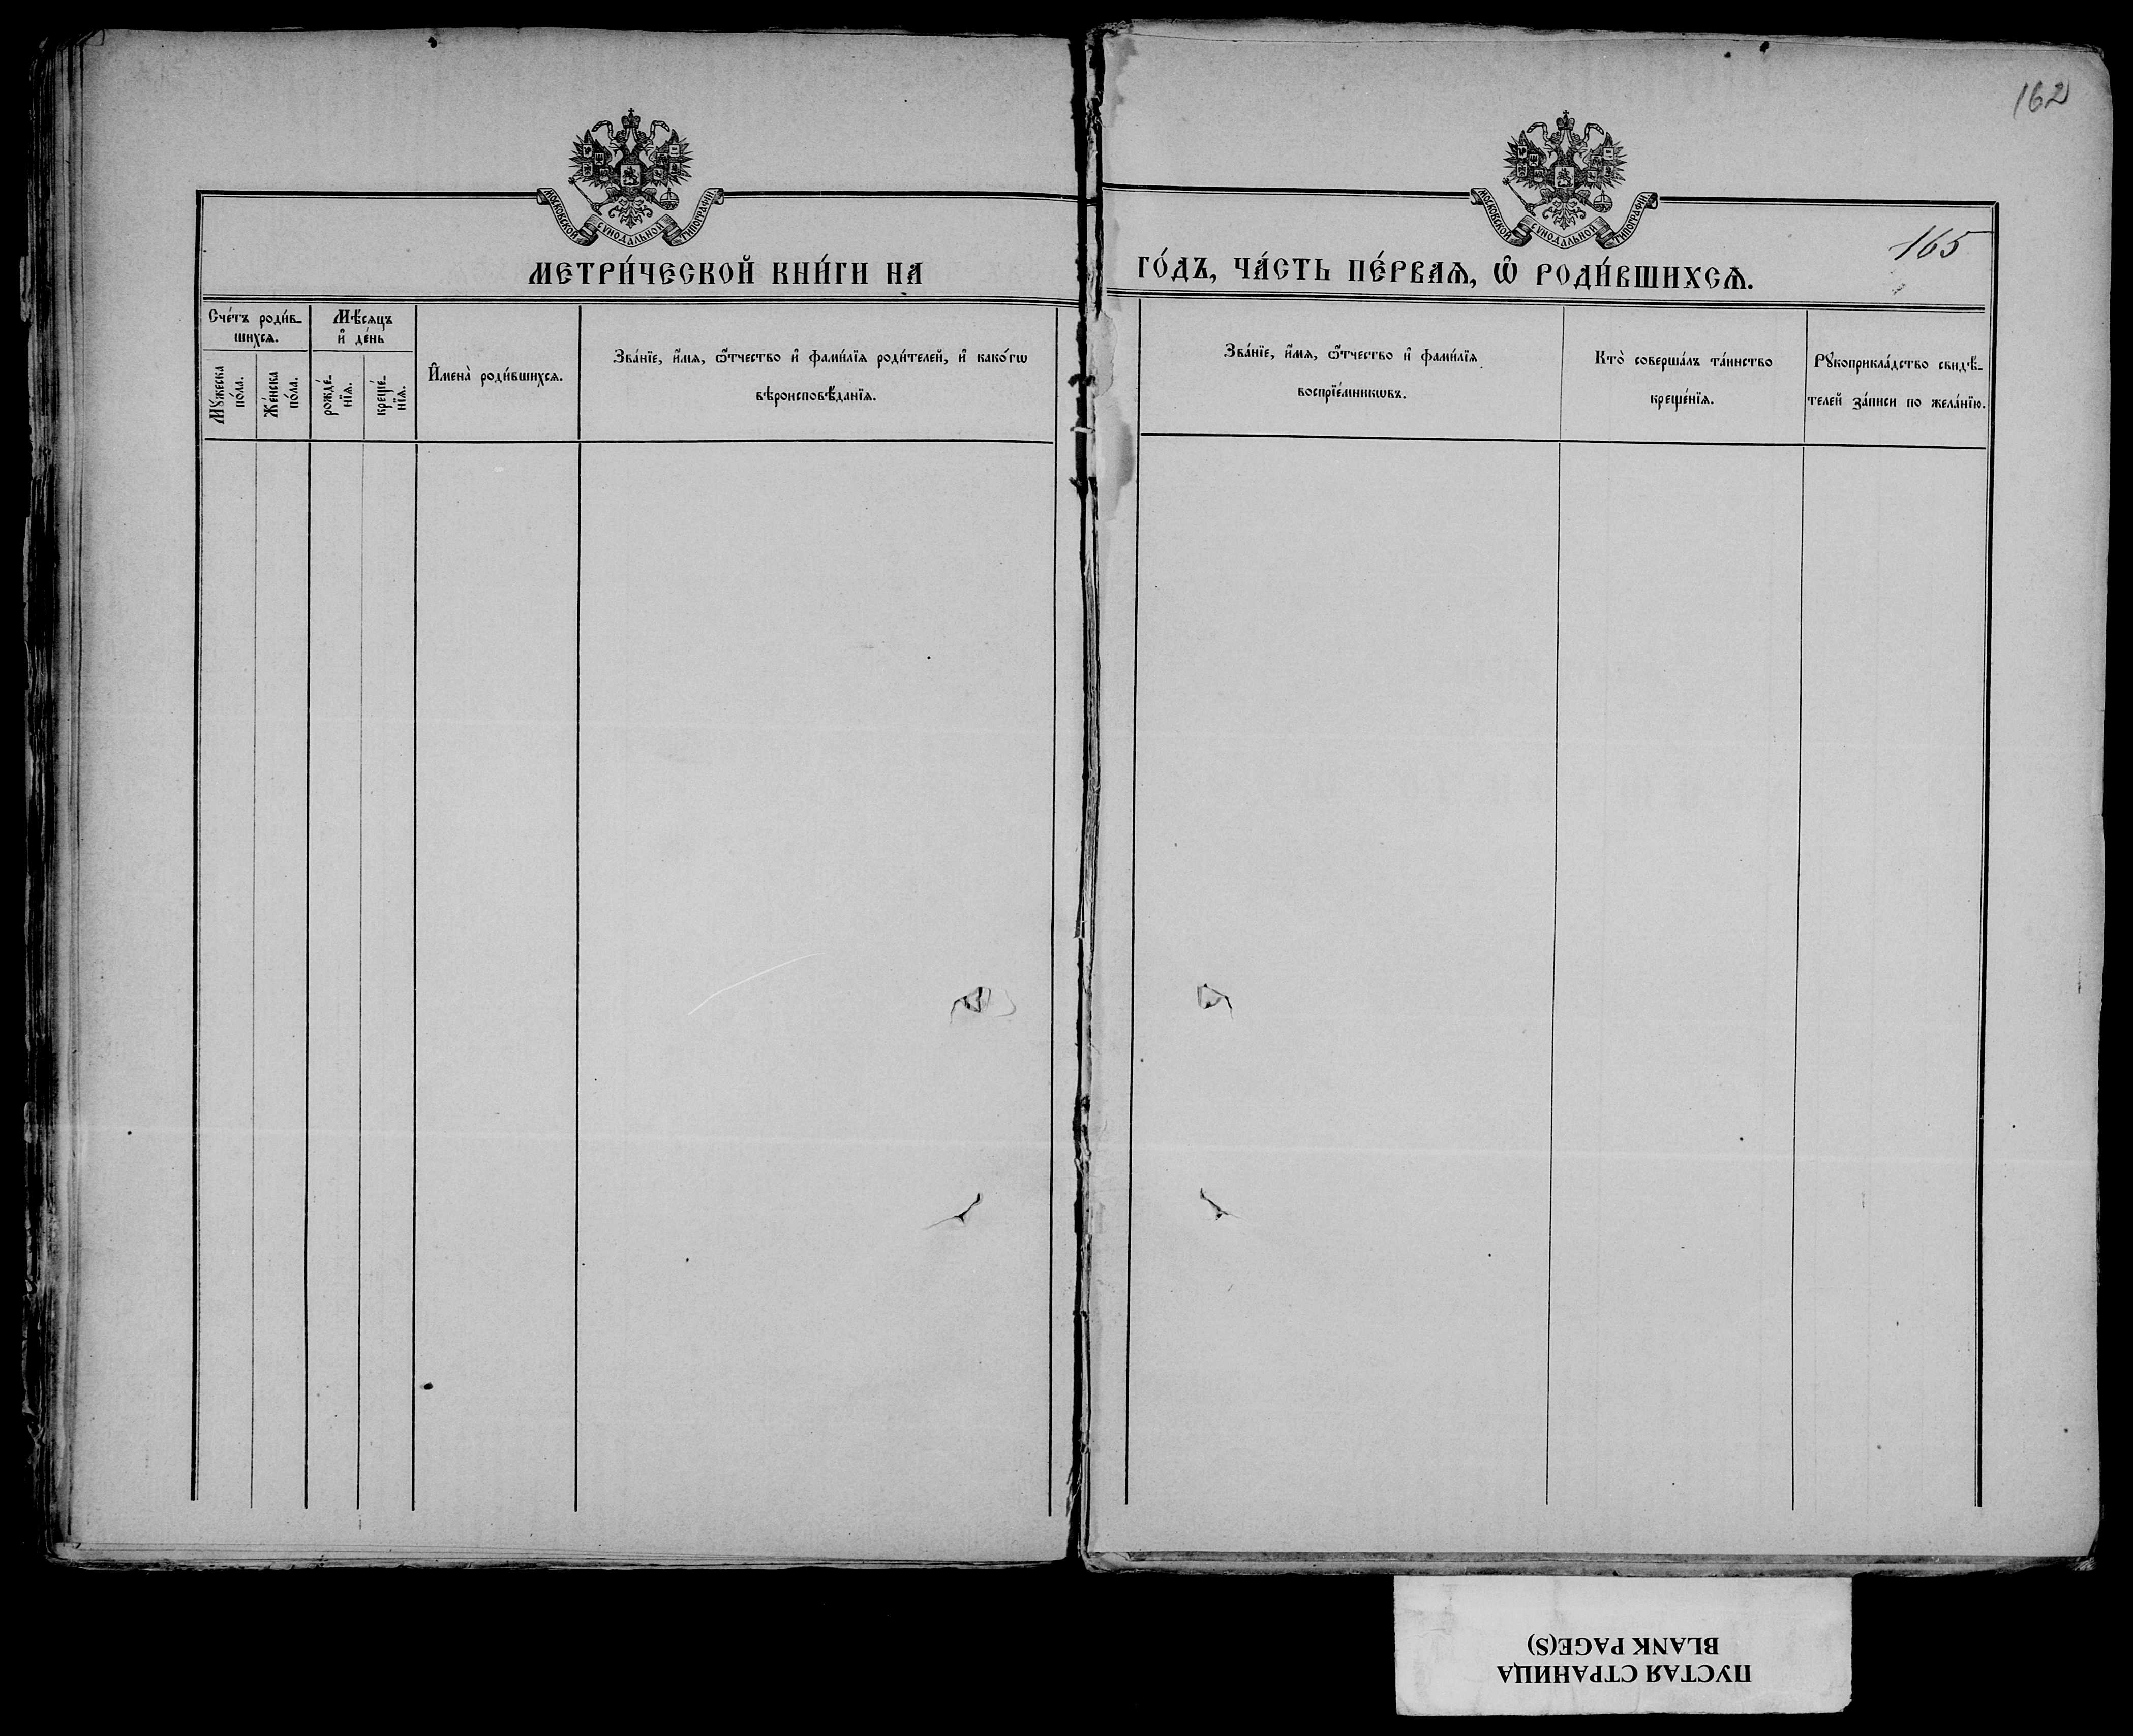 162
МОСКОВСКОЙ СѴНОДАЛЬНОЙ ТИПОГРАФІИ
МОСКОВСКОЙ СѴНОДАЛЬНОЙ ТИПОГРАФІИ
165
МЕТРИ́ЧЕСКОЙ КНИ́ГИ НА
ГО́ДЪ, ЧА́СТЬ ПЕ́РВАѦ, Ѽ РОДИ́ВШИХСѦ.
Сче́тъ роди́в-
шихсѧ.
Мꙋжеска
по́ла.
Же́нска
по́ла.
Мѣ́сѧцъ
и҆ де́нь
рожде́-
нїѧ.
креще́-
нїѧ.
И҆мена̀ роди́вшихсѧ.
Зва́нїе, и҆́мѧ, ѻ҆́тчество и҆ фами́лїѧ роди́телей, и҆ како́гѡ
вѣроисповѣ́данїѧ.
Зва́нїе, и҆́мѧ, ѻ҆́тчество и҆ фами́лїѧ
воспрїе́мникѡвъ.
Кто̀ соверша́лъ та́инство
креще́нїѧ.
Рꙋкоприкла́дство свидѣ́-
телей за́писи по жела́нїю.
ПУСТАЯ СТРАНИЦА
BLANK PAGE(S)